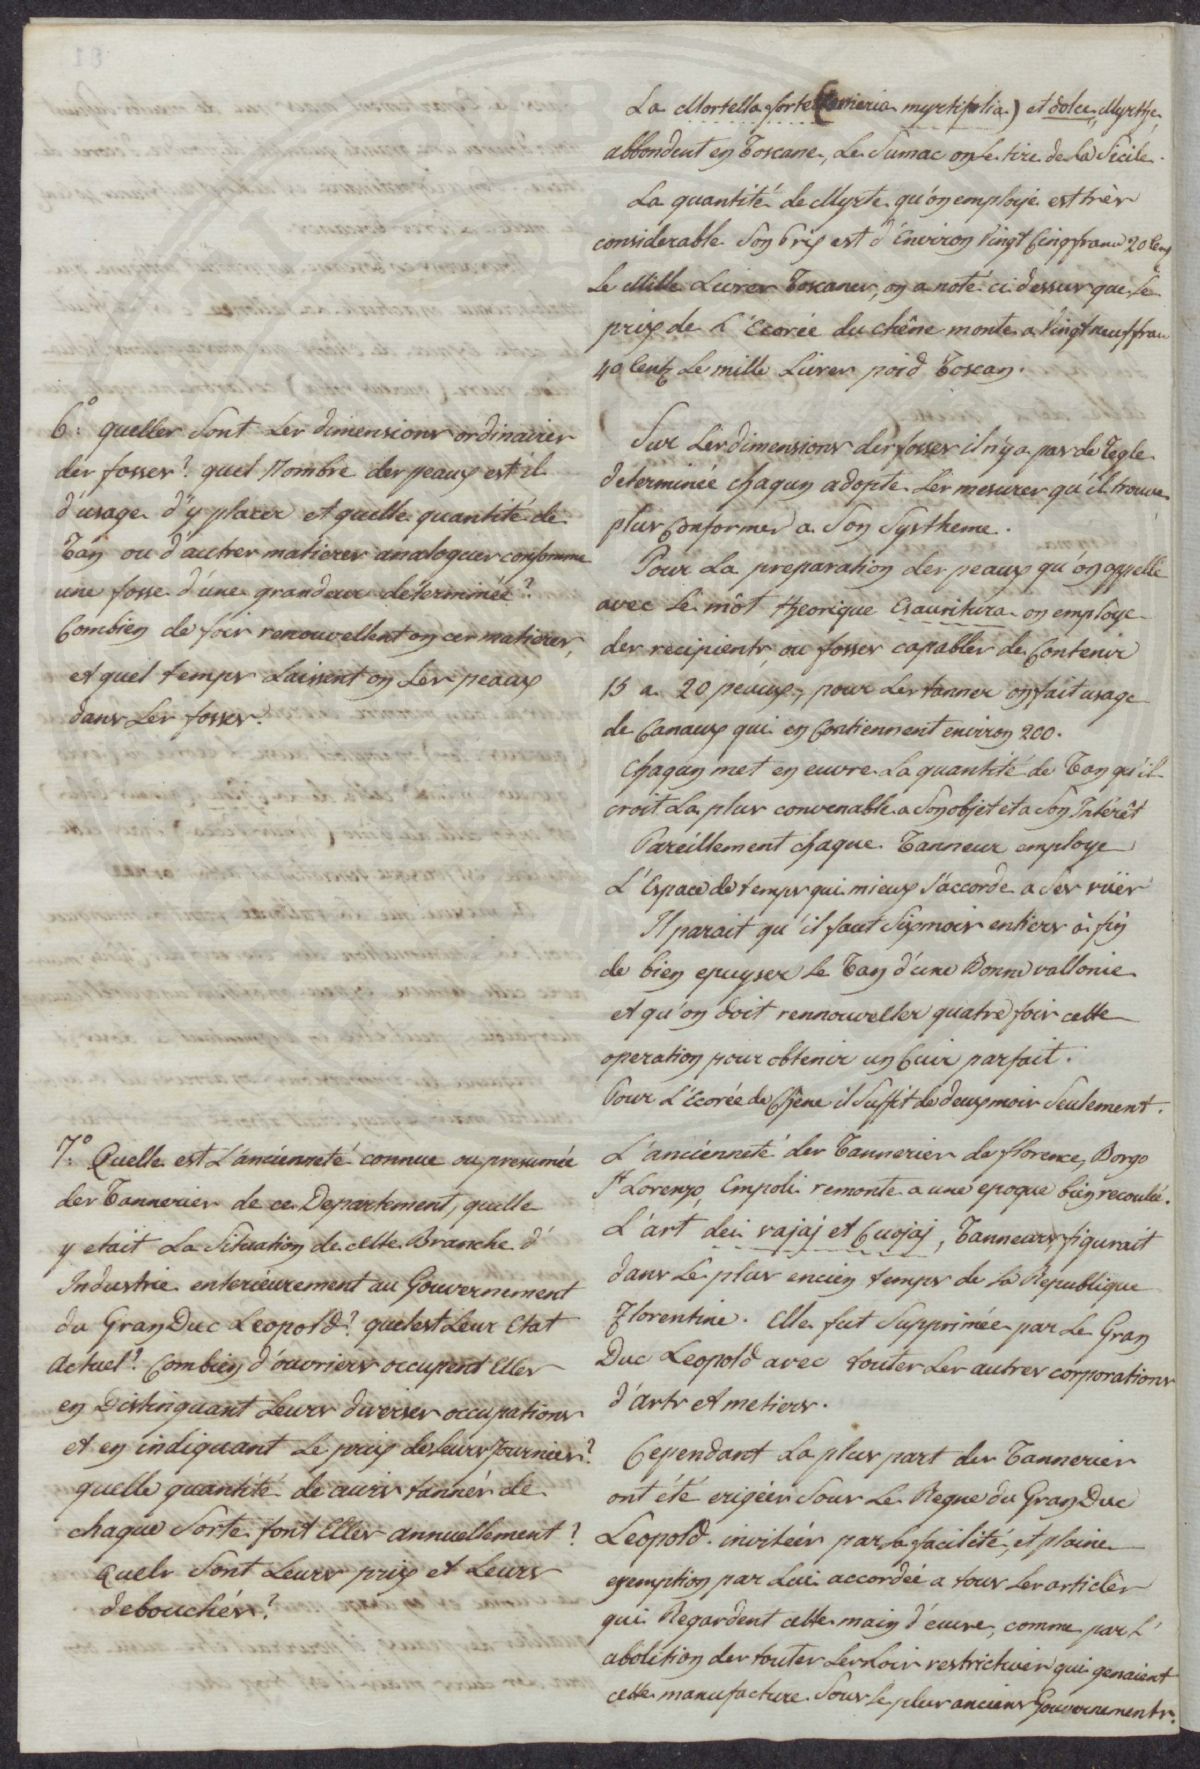 La Mortella forte (Correria myrtifolia) et dolce, Myrthe,
abbondent en Toscane, Le Sumac on Le tire de la Sicile.
La quantité de Myrte qu'on employe est très
considerable Son prix est d'Environ Vingt Cinq francs 20 Cent
Le Mille Livres Toscanes, on a noté ci dessus que Le
prix de L'Ecorée du chêne monte a Vingt neuf fran
40 Cent Le mille Livres poid Toscan.
6.º quelles Sont Les dimensions ordinaires
des fosses? quel Nombre des peaux est il
d'usage d'y placer et quelle quantité de
Tan ou d'autres matieres analogues consomme
une fosse d'une grandeur déterminée?
Combien de fois renouvellent on ces matieres,
et quel temps Laissent on Les peaux
dans Les fosses?
Sur Les dimensions des fosses il n'y a pas de Regle
determinée chaqun adopte Les mesures qu'il trouve
plus Conformes a Son Systheme.
Pour La preparation des peaux qu'on appelle
avec Le môt theorique Esauritura on employe
des recipients, ou fosses capables de Contenir
15 a 20 peaux, pour Les tanner on fait usage
de Canaux qui en Contiennent environ 200.
Chaqun met en euvre La quantité de Tan qu'il
croit La plus convenable a Son objet et a Son Intérêt
Pareillement chaque Tanneur employe
L'Espace de temps qui mieux s'accorde a Ses vüës
Il parait qu'il faut Six mois entiers à fin
de bien epuyser Le Tan d'une Bonne vallonie
et qu'on doit rennouveller quatre fois cette
operation pour obtenir un Cuir parfait.
Pour L'Ecorée de Chêne il Suffit de deux mois Seulement.
7.º Quelle est L'ancienneté connue ou presumée
des Tanneries de ce Departement, quelle
y etait La Situation de cette Branche d'
Industrie enterieurement au Gouvernement
du Gran Duc Leopold? quel est Leur Etat
actuel? Combien d'ouvriers occupent Elles
en Distinguant Leurs diverses occupations
et en indiquant Le prix de leurs Journées?
quelle quantité de cuirs tannés de
chaque Sorte font Elles annuellement?
Quels Sont Leurs prix et Leurs
debouchés?
L'ancienneté des Tanneries de florence, Borgo
St Lorenzo, Empoli remonte a une epoque bien recoulée.
L'art dei vajaj et Cuojaj, Tanneurs, figurait
dans Le plus encien temps de la Republique
Florentine. Elle fut Supprimée par Le Gran
Duc Leopold avec toutes Les autres corporations
d'arts et metiers.
Cependant La plus part des Tanneries
ont été erigées Sous Le Regne du Gran Duc
Leopold. invitées par la facilité, et plaine
exemption par Lui accordée a tous Les articles
qui Regardent cette main d'euvre, comme par L'
abolition des toutes Les Loix restrictives qui genaient
cette manufacture Sous Le plus anciens Gouvernements.